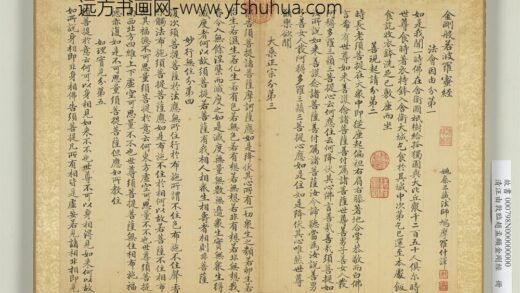 远方书画网-www.yfshuhua.com
金剛般若波羅蜜經
姚秦三藏法師鳩摩羅什譯
法會因由分第一
如是我聞一時佛在舍衛國祇樹給孤獨園與大比丘衆千二百五十人俱爾時
世尊食時著衣持鉢入舍衛大城乞食於其城中次第乞已還至本處飯
食訖收衣鉢洗足已敷座而坐
善現起請分第二
時長老須菩提在大衆中即從座起偏袒右肩右膝著地合掌恭敬而白佛
言希有世尊如來善護念諸菩薩善付囑諸菩薩世尊善男子善女人發
阿耨多羅三藐三菩提心云何應住云何降伏其心佛言善哉善哉須菩提如汝
所說如來善護念諸菩薩善付囑諸菩薩汝今諦聽當為汝說善男
子善女人發阿耨多羅三藐三菩提心應如是住如是降伏其心唯然世尊
願樂欲聞
大乘正宗分第三
佛告須菩提諸菩薩摩訶薩應如是降伏其心所有一切衆生之類若
卵生若胎生若濕生若化生若有色若無色若有想若無想若非有想非無想我皆
令入無餘涅槃而滅度之如是滅度無量無數無邊衆生實無衆生得滅
度者何以故須菩提若菩薩有我相人相衆生相壽者相則非菩薩
妙行無住分第四
復次須菩提菩薩於法應無所住行於布施所謂不住色布施不住聲香
味觸法布施須菩提菩薩應如是布施不住於相何以故若菩薩不住相布施
其福德不可思量須菩提於意云何東方虛空可思量不不也世尊須菩提
南西北方四維上下虛空可思量不不也世尊須菩提菩薩無住相布施福
德亦復如是不可思量須菩提菩薩但應如所教住
如理實見分第五
須菩提於意云何可以身相見如來不不也世尊不可以身相得見如來何以故
如來所說身相即非身相佛告須菩提凡所有相皆是虛妄若見諸相非相即見
故畫 000798N000000000
清汪由敦臨趙孟頫